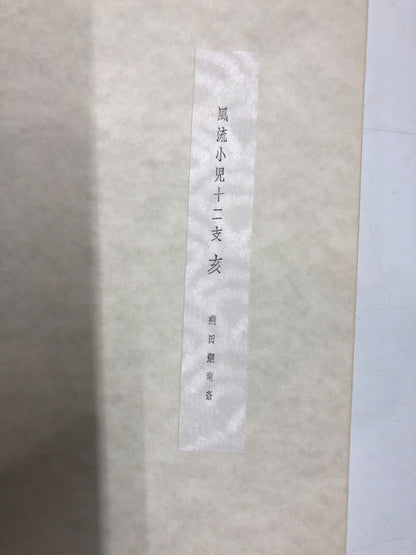 風流小児十二支 亥
磯田湖竜斎